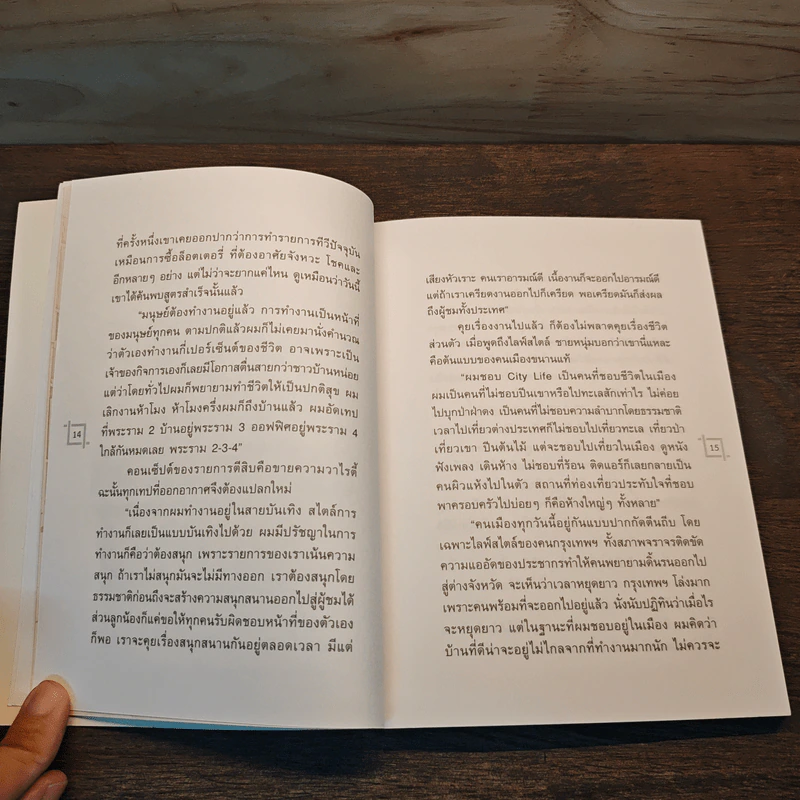 ที่ครั้งหนึ่งเขาเคยออกปากว่าการทำรายการทีวีปัจจุบัน
เหมือนการซื้อล็อตเตอรี่ ที่ต้องอาศัยจังหวะ โชคและ
อีกหลายๆ อย่าง แต่ไม่ว่าจะยากแค่ไหน ดูเหมือนว่าวันนี้
เขาได้ค้นพบสูตรสำเร็จนั้นแล้ว
“มนุษย์ต้องทำงานอยู่แล้ว การทำงานเป็นหน้าที่
ของมนุษย์ทุกคน ตามปกติแล้วผมก็ไม่เคยมานั่งคำนวณ
ว่าตัวเองทำงานกี่เปอร์เซ็นต์ของชีวิต อาจเพราะเป็น
เจ้าของกิจการเองก็เลยมีโอกาสตื่นสายกว่าชาวบ้านหน่อย
แต่ว่าโดยทั่วไปผมก็พยายามทำชีวิตให้เป็นปกติสุข ผม
เลิกงานห้าโมง ห้าโมงครึ่งผมก็ถึงบ้านแล้ว ผมอัดเทป
ที่พระราม 2 บ้านอยู่พระราม 3 ออฟฟิศอยู่พระราม 4
ใกล้กันหมดเลย พระราม 2-3-4”
คอนเซ็ปต์ของรายการตีสิบคือขายความวาไรตี้
ฉะนั้นทุกเทปที่ออกอากาศจึงต้องแปลกใหม่
“เนื่องจากผมทำงานอยู่ในสายบันเทิง สไตล์การ
ทำงานก็เลยเป็นแบบบันเทิงไปด้วย ผมมีปรัชญาในการ
ทำงานก็คือว่าต้องสนุก เพราะรายการของเราเน้นความ
สนุก ถ้าเราไม่สนุกมันจะไม่มีทางออก เราต้องสนุกโดย
ธรรมชาติก่อนถึงจะสร้างความสนุกสนานออกไปสู่ผู้ชมได้
ส่วนลูกน้องก็แค่ขอให้ทุกคนรับผิดชอบหน้าที่ของตัวเอง
ก็พอ เราจะคุยเรื่องสนุกสนานกันอยู่ตลอดเวลา มีแต่
14
เสียงหัวเราะ คนเราอารมณ์ดี เนื้องานก็จะออกไปอารมณ์ดี
แต่ถ้าเราเครียดงานออกไปก็เครียด พอเครียดมันก็ส่งผล
ถึงผู้ชมทั้งประเทศ”
คุยเรื่องงานไปแล้ว ก็ต้องไม่พลาดคุยเรื่องชีวิต
ส่วนตัว เมื่อพูดถึงไลฟ์สไตล์ ชายหนุ่มบอกว่าเขานี่แหละ
คือต้นแบบของคนเมืองขนานแท้
“ผมชอบ City Life เป็นคนที่ชอบชีวิตในเมือง
ผมเป็นคนที่ไม่ชอบปีนเขาหรือไปทะเลสักเท่าไร ไม่ค่อย
ไปบุกป่าฝ่าดง เป็นคนที่ไม่ชอบความลำบากโดยธรรมชาติ
เวลาไปเที่ยวต่างประเทศก็ไม่ชอบไปเที่ยวทะเล เที่ยวป่า
เที่ยวเขา ปีนต้นไม้ แต่จะชอบไปเที่ยวในเมือง ดูหนัง
ฟังเพลง เดินห้าง ไม่ชอบที่ร้อน ติดแอร์ก็เลยกลายเป็น
คนผิวแห้งไปในตัว สถานที่ท่องเที่ยวประทับใจที่ชอบ
พาครอบครัวไปบ่อยๆ ก็คือห้างใหญ่ๆ ทั้งหลาย”
“คนเมืองทุกวันนี้อยู่กันแบบปากกัดตีนถีบ โดย
เฉพาะไลฟ์สไตล์ของคนกรุงเทพฯ ทั้งสภาพจราจรติดขัด
ความแออัดของประชากรทำให้คนพยายามดิ้นรนออกไป
สู่ต่างจังหวัด จะเห็นว่าเวลาหยุดยาว กรุงเทพฯ โล่งมาก
เพราะคนพร้อมที่จะออกไปอยู่แล้ว นั่งนับปฏิทินว่าเมื่อไร
จะหยุดยาว แต่ในฐานะที่ผมชอบอยู่ในเมือง ผมคิดว่า
บ้านที่ดีน่าจะอยู่ไม่ไกลจากที่ทำงานมากนัก ไม่ควรจะ
15